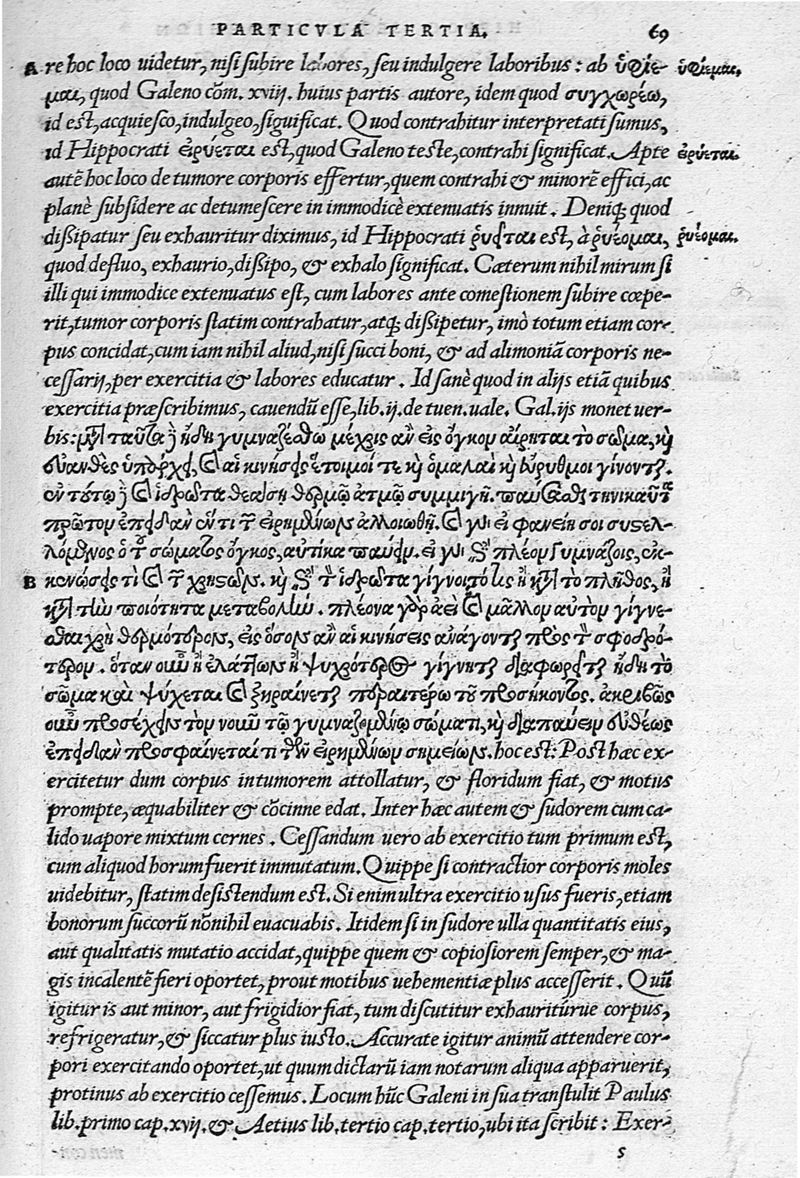 PARTICVLA TERTIA. 69
A re hoc loco uidetur, nisi subire labores, seu indulgere laboribus: ab ὑφίε- ὑφίεμαι.
μαι, quod Galeno cõm. xvij. huius partis autore, idem quod συγχωρέω,
id est, acquiesco, indulgeo, significat. Quod contrahitur interpretati sumus,
id Hippocrati ἐρύεται est, quod Galeno teste, contrahi significat. Apte ἐρύεται.
autẽ hoc loco de tumore corporis effertur, quem contrahi & minorẽ effici, ac
planè subsidere ac detumescere in immodicè extenuatis innuit. Deniq; quod
dissipatur seu exhauritur diximus, id Hippocrati est, à ῥυέομαι, ῥυέομαι.
quod defluo, exhaurio, dissipo, & exhalo significat. Cæterum nihil mirum si
illi qui immodice extenuatus est, cum labores ante comestionem subire cœpe-
rit, tumor corporis statim contrahatur, atq; dissipetur, imò totum etiam cor-
pus concidat, cum iam nihil aliud, nisi succi boni, & ad alimoniã corporis ne-
cessarij, per exercitia & labores educatur. Id sanè quod in alijs etiã quibus
exercitia præscribimus, cauendũ esse, lib. ij. de tuen. uale. Gal. ijs monet uer-
bis: μετὰ ταῦτα δὲ ἤδη γυμναζέσθω μέχρις ἂν εἰς ὄγκον αἴρηται τὸ σῶμα, καὶ
εὐανθὲς ὑπάρχῃ, καὶ αἱ κινήσεις ἕτοιμοί τε καὶ ὁμαλαὶ καὶ εὔρυθμοι γίνονται.
ἐν τούτῳ δὲ καὶ ἱδρῶτα θεάσῃ θερμῷ ἀτμῷ συμμιγῆ. παύεσθαι τηνικαῦτα
πρῶτον ἐπειδὰν ἕν τι τῶν εἰρημένων ἀλλοιωθῇ. καὶ γὰρ εἰ φανείη σοι συστελ-
λόμενος ὁ τοῦ σώματος ὄγκος, αὐτίκα παύειν. εἰ γὰρ ἐπὶ πλέον γυμνάζοις, ἐκ-
B κενώσεις τι καὶ τῶν χρηστῶν. καὶ ἐπὶ τοῦ ἱδρῶτα γίγνοιτο τις ἢ κατὰ τὸ πλῆθος, ἢ
κατὰ τὴν ποιότητα μεταβολὴ. πλέονα γὰρ ἀεὶ καὶ μᾶλλον αὐτὸν γίγνε-
σθαι χρὴ θερμότερον, εἰς ὅσον ἂν αἱ κινήσεις ἀνάγονται πρὸς τὸ σφοδρό-
τερον. ὅταν οὖν ἢ ἐλάττων ἢ ψυχρότερος γίγνηται διαφορεῖται ἤδη τὸ
σῶμα καὶ ψύχεται καὶ ξηραίνεται περαιτέρω τοῦ προσήκοντος. ἀκριβῶς
οὖν προσέχειν τὸν νοῦν τῷ γυμναζομένῳ σώματι, καὶ διαπαύειν εὐθέως
ἐπειδὰν προσφαίνεταί τι τῶν εἰρημένων σημείων. hoc est: Post hæc ex-
ercitetur dum corpus in tumorem attollatur, & floridum fiat, & motus
prompte, æquabiliter & cõcinne edat. Inter hæc autem & sudorem cum ca-
lido uapore mixtum cernes. Cessandum uero ab exercitio tum primum est,
cum aliquod horum fuerit immutatum. Quippe si contractior corporis moles
uidebitur, statim desistendum est. Si enim ultra exercitio usus fueris, etiam
bonorum succorũ nõnihil euacuabis. Itidem si in sudore ulla quantitatis eius,
aut qualitatis mutatio accidat, quippe quem & copiosiorem semper, & ma-
gis incalentẽ fieri oportet, prout motibus uehementiæ plus accesserit. Quũ
igitur is aut minor, aut frigidior fiat, tum discutitur exhauriturúe corpus,
refrigeratur, & siccatur plus iusto. Accurate igitur animũ attendere cor-
pori exercitando oportet, ut quum dictarũ iam notarum aliqua apparuerit,
protinus ab exercitio cessemus. Locum hũc Galeni in sua transtulit Paulus
lib. primo cap. xvij. & Aetius lib. tertio cap. tertio, ubi ita scribit: Exer-
s